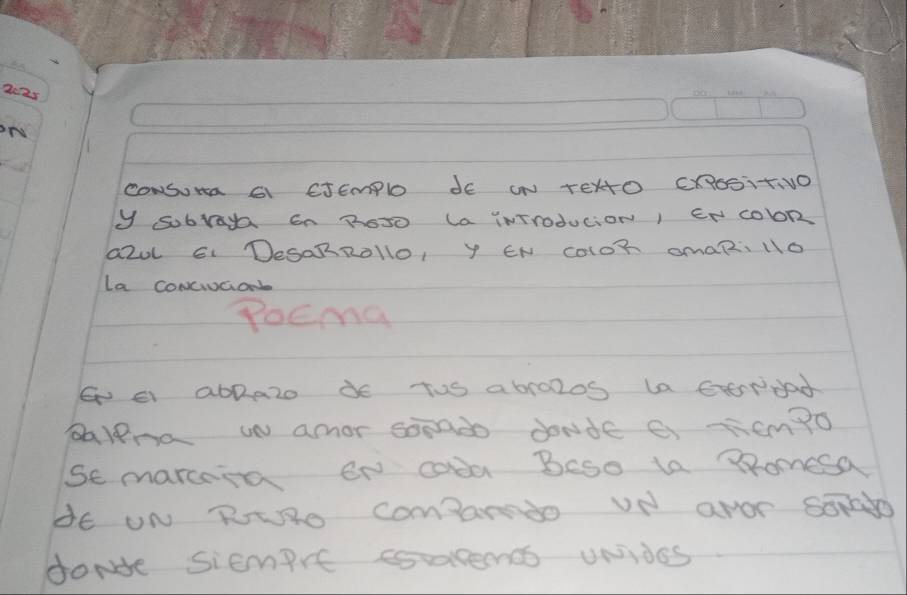 2025
ON
DD MM AA
CONSULTA El EJEMPlO dE UN TEXTO EXPOSiTiVO
y subraya En ROJO la iNTRODUCiON, EN COlOR
aZUL El DesaRRollo, y EN COlOR amaRillo
la CONCLUCiON
POEma
EN El abRazo dE TUS abrazos la ETERNidad
palpma UN amor soñado doNdE El TiEmPO
SE marchita EN cada BESO la PROmEsa
dE UN compartido UN amor soñado
doNde SiEmPrE Estaremos UNidos